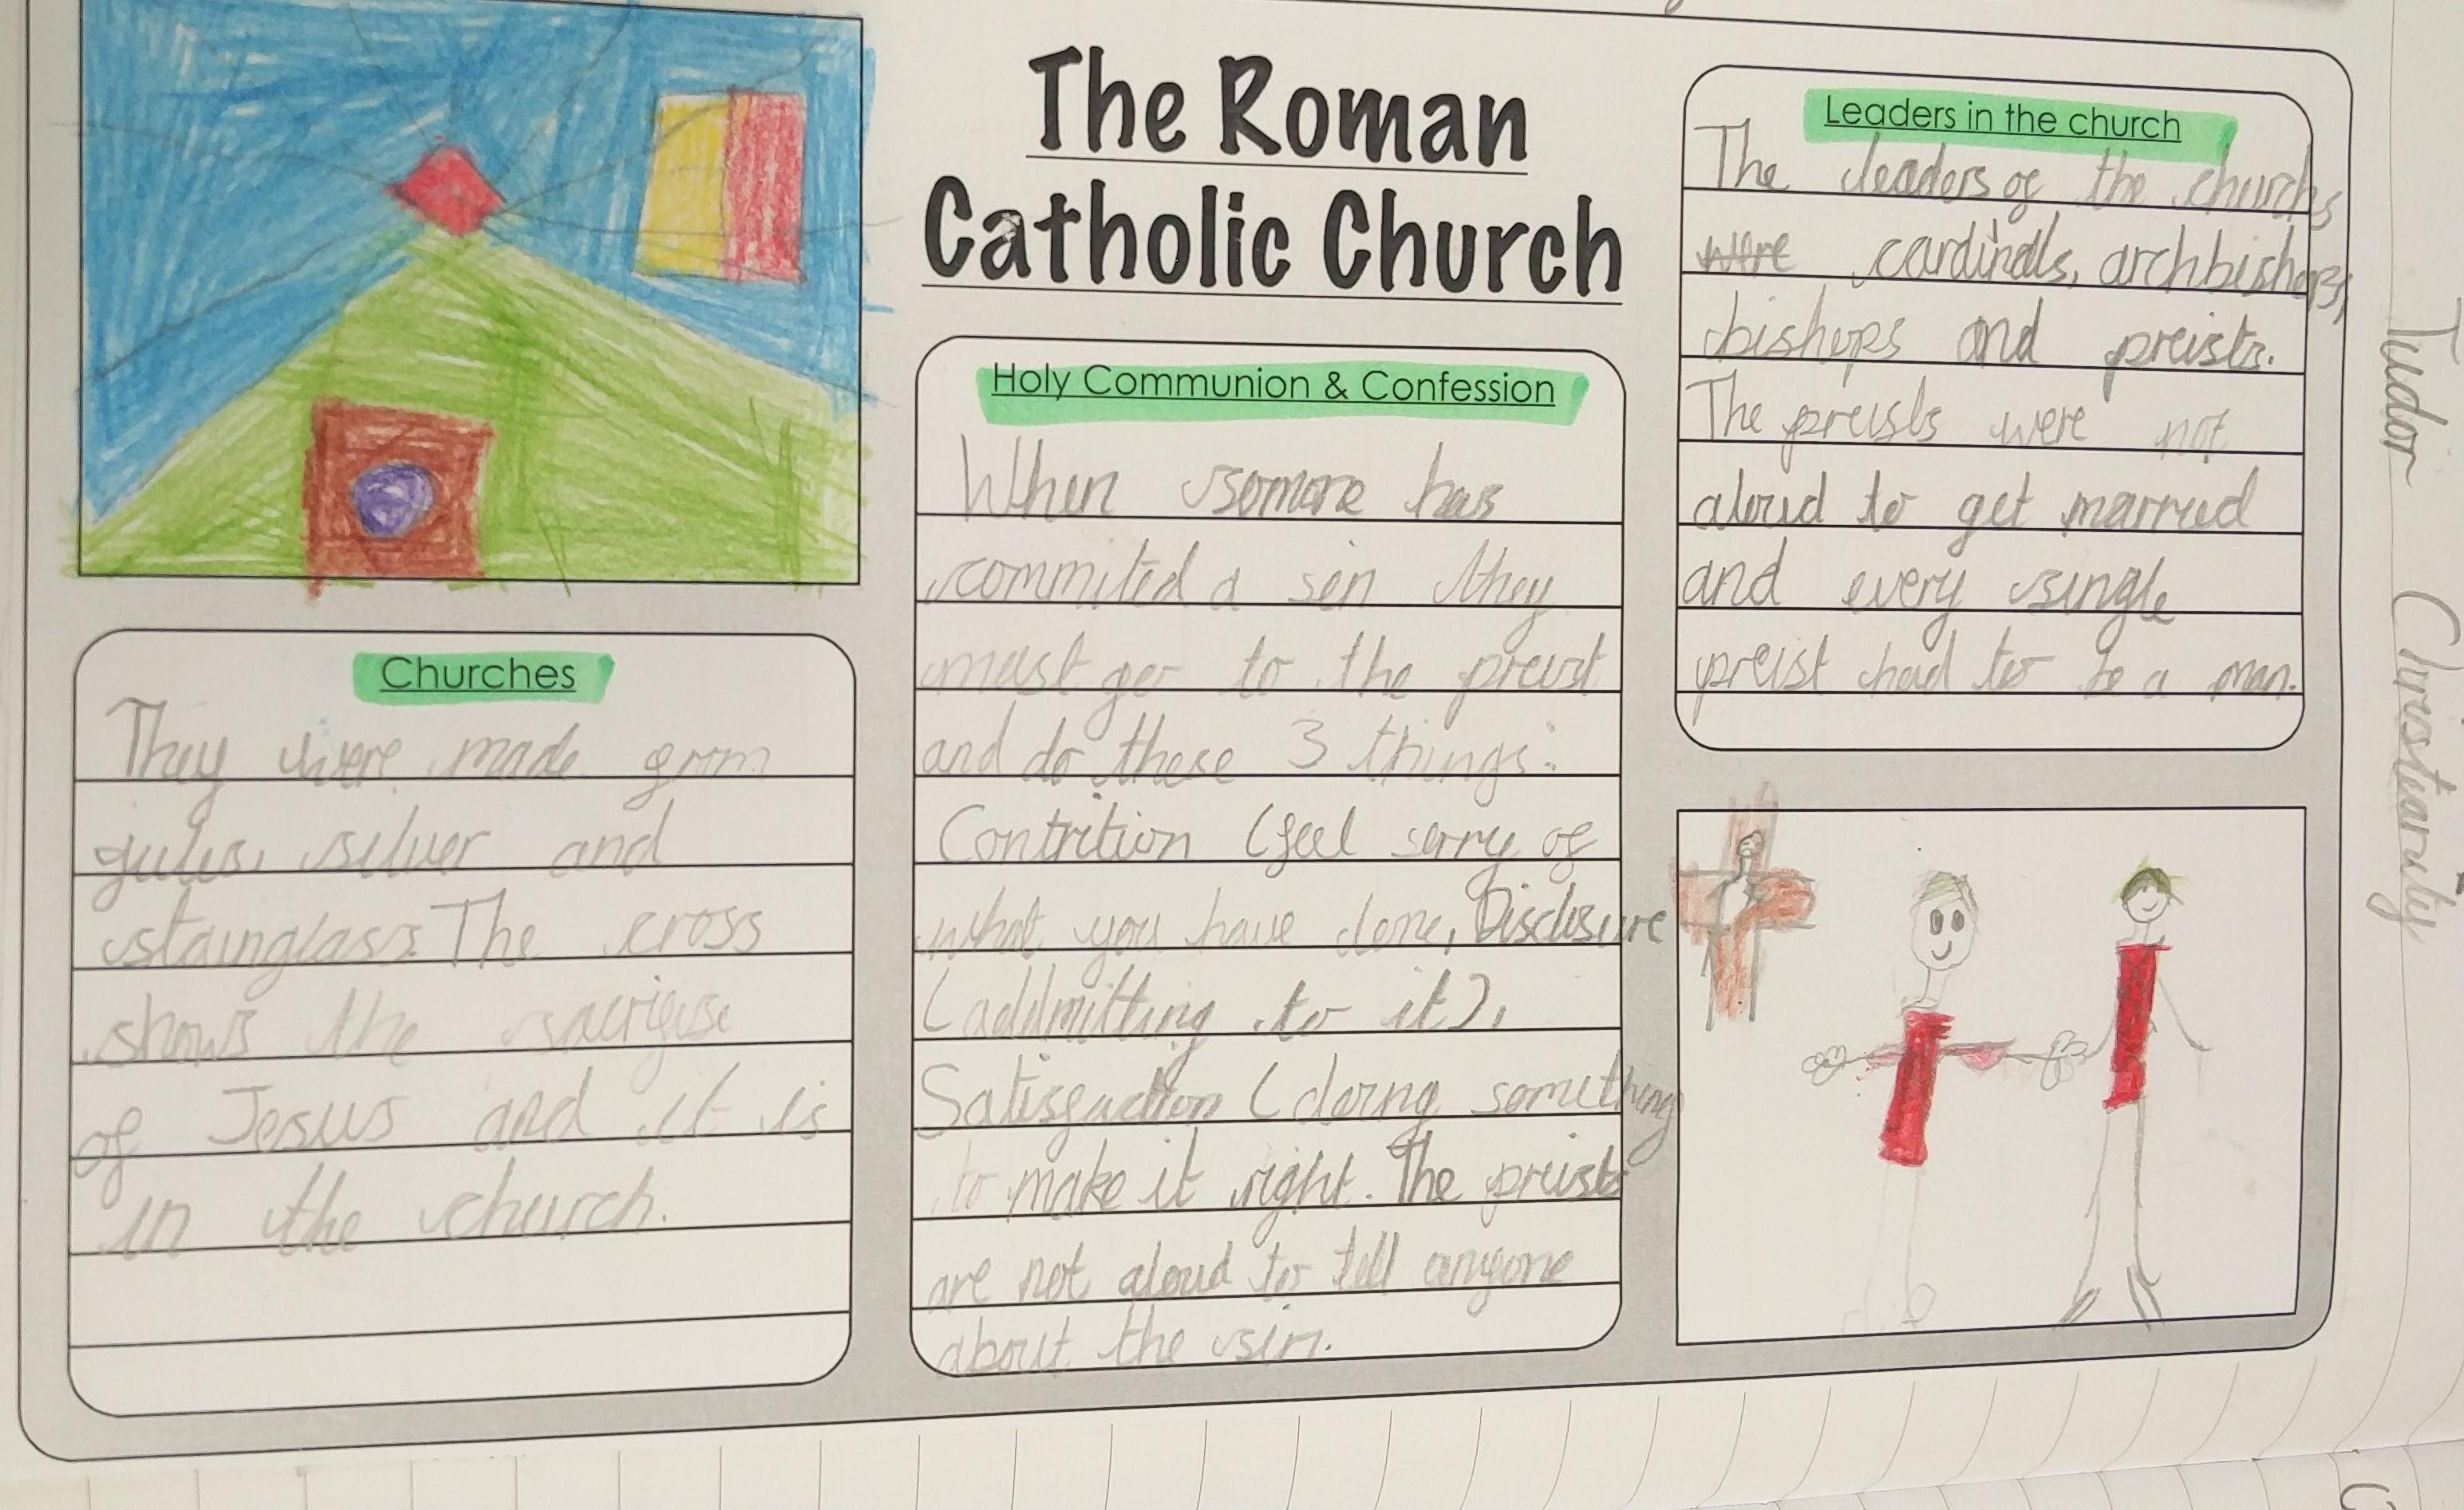 The Roman
Catholic Church
Churches
They were made from
silver and
stainglass. The cross
shows the sacrifise
of Jesus and it is
in the church.
Holy Communion & Confession
When somone has
commited a sin they
must go to the preist
and do these 3 things:
Contrition (feel sorry of
what you have done, Disclosure
(addmitting to it),
Satisfaction (doing something
to make it right. The preists
are not aloud to tell anyone
about the sin.
Leaders in the church
The leaders of the churchs
were cardinals, archbishops,
bishops and preists.
The preists were not
aloud to get married
and every single
preist had to be a man.
Tudor Christianity